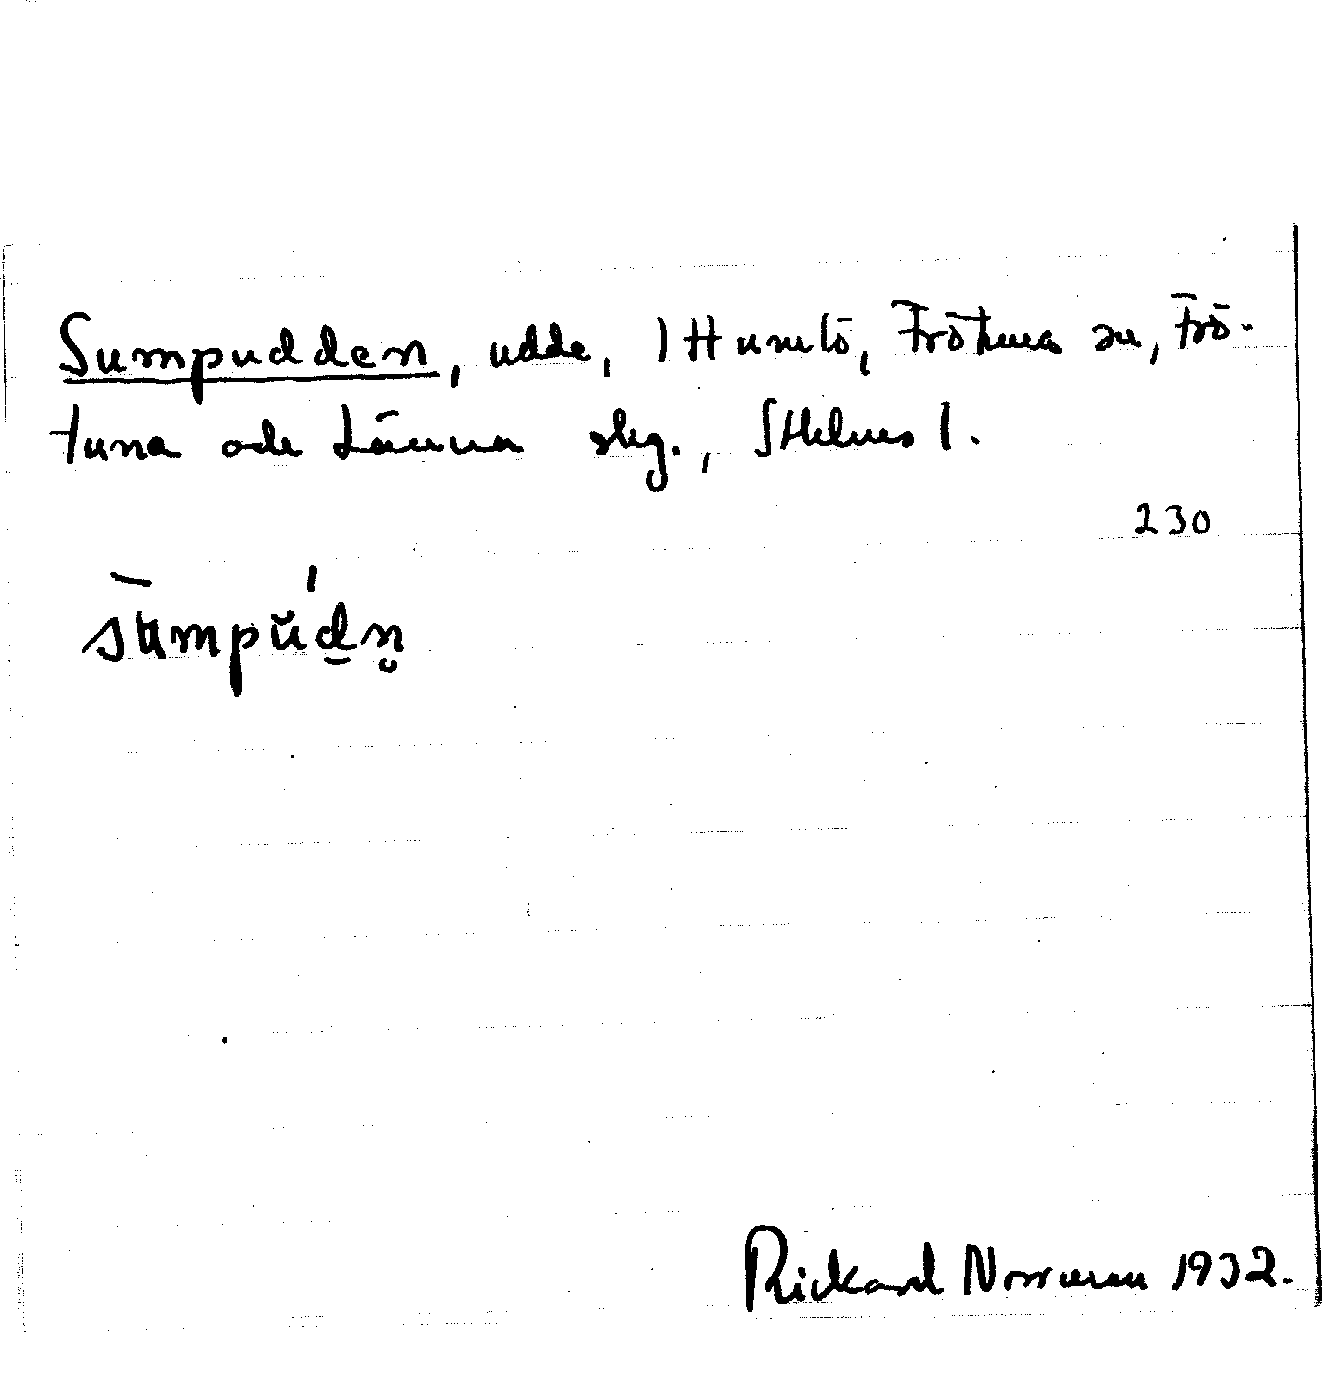 Sumpudden, udde, 1 Humlö, Frötuna sn, Frö-
tuna och Länna skg., Sthlms l.
230
sumpŭdn
Rickard Norrman 1932.